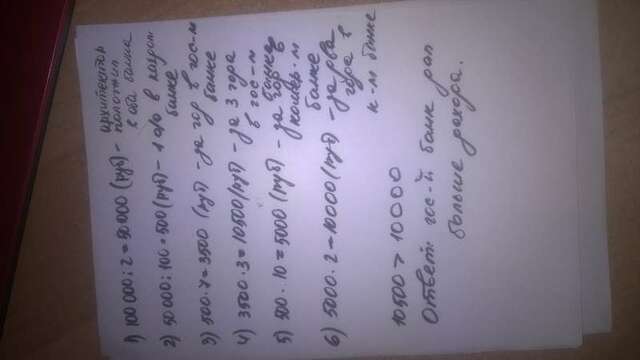 1) 100 000 : 2 = 50 000 (руб) - архитектор
положил
в оба банка
2) 50 000 : 100 = 500 (руб) - 1 % в каждом
банке
3) 500 · 7 = 3500 (руб) - за год в гос-м
банке
4) 3500 · 3 = 10500 (руб) - за 3 года
в гос-м
банке
5) 500 · 10 = 5000 (руб) - за год в
коммер. м
банке
6) 5000 · 2 = 10000 (руб) - за два
года в
к-м банке
10500 > 10000
Ответ: гос-й банк дал
больше дохода.